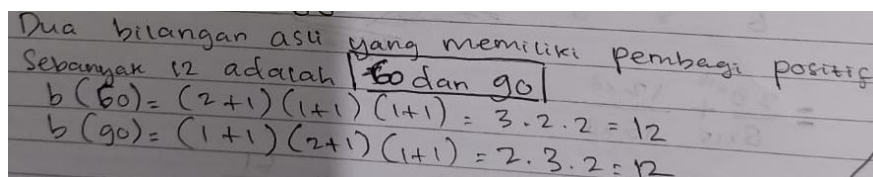 Dua bilangan asli yang memiliki pembagi positif
Sebanyak 12 adalah 60 dan 90
b(60) = (2+1)(1+1)(1+1) = 3.2.2 = 12
b(90) = (1+1)(2+1)(1+1) = 2.3.2 = 12